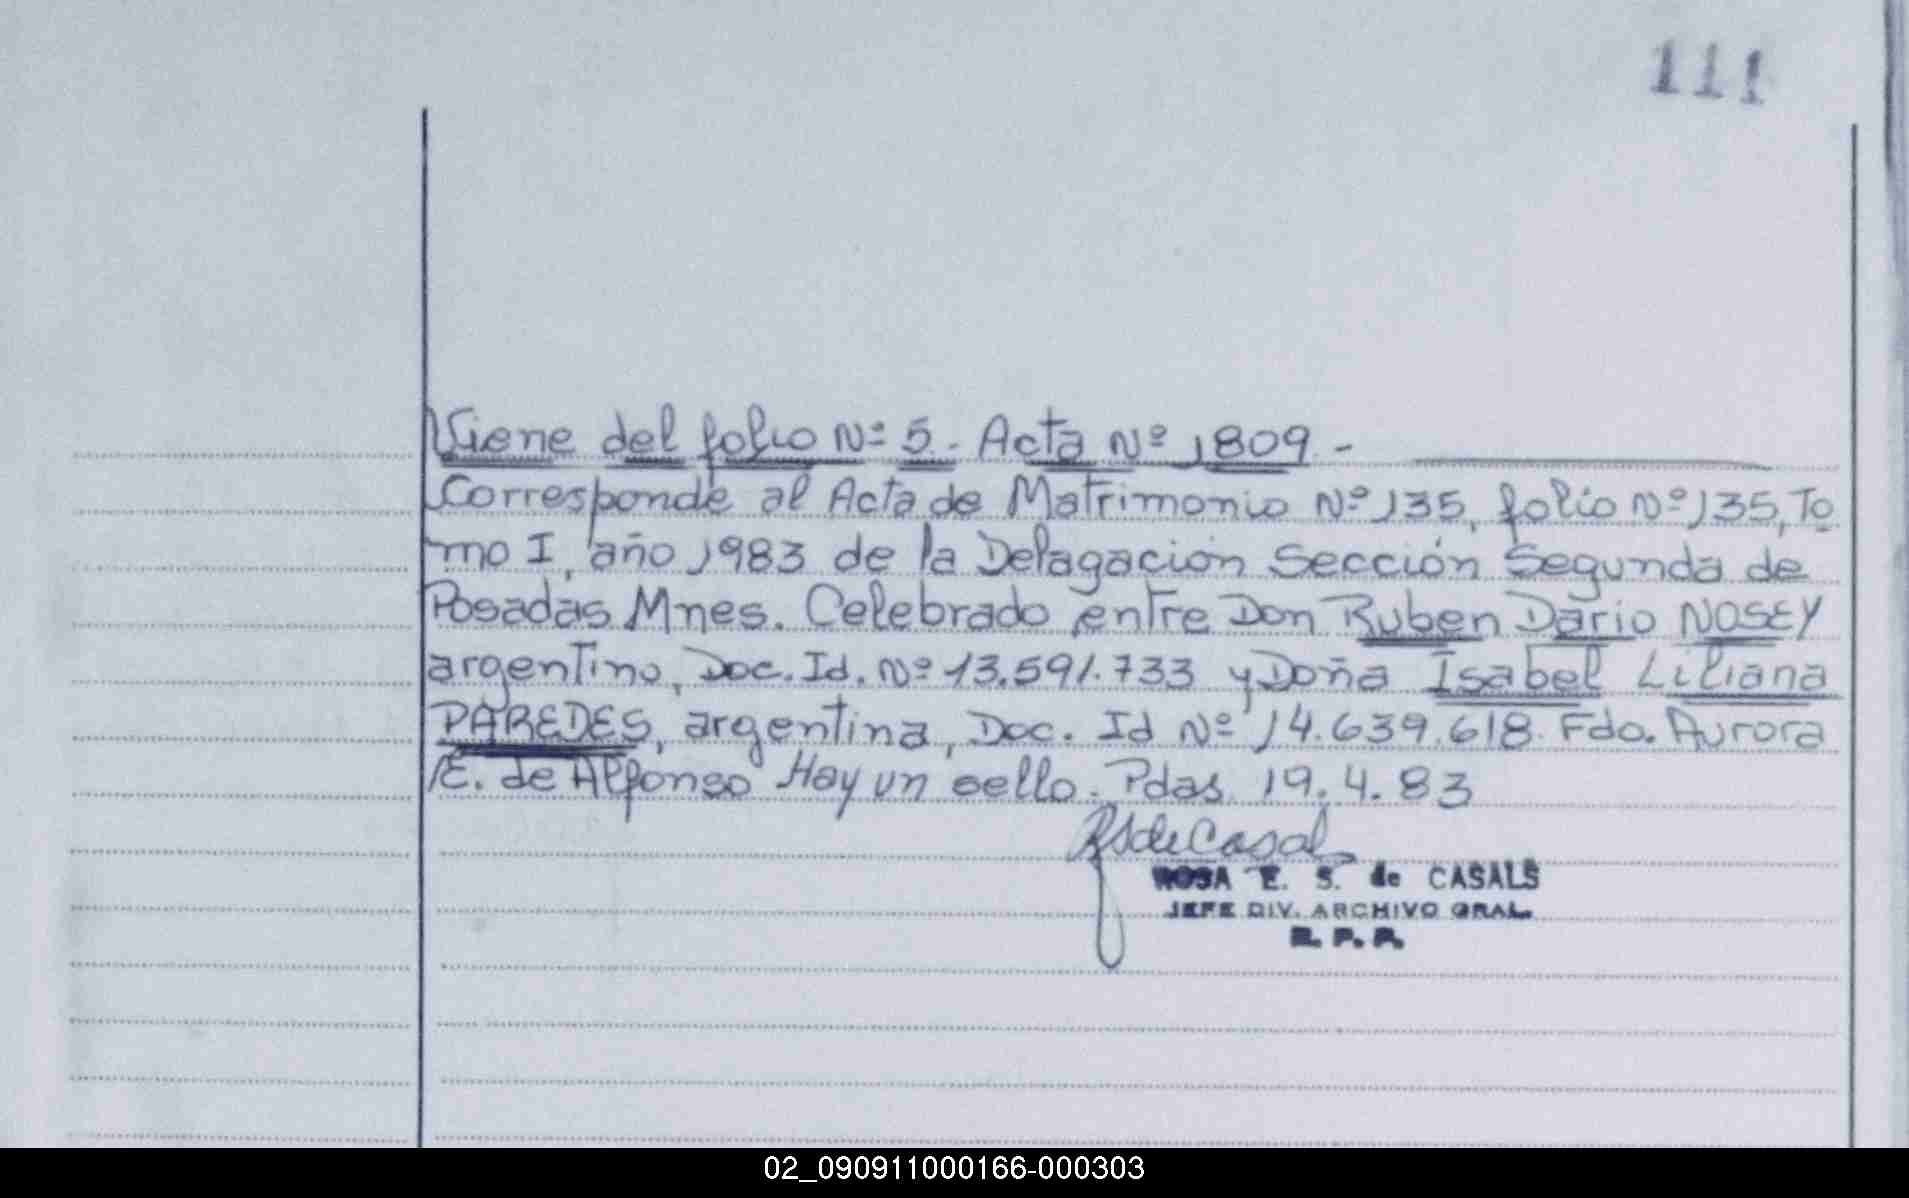 111
Viene del folio Nº 5.- Acta Nº 1809.-
Corresponde al Acta de Matrimonio Nº 135, folio Nº 135, To
mo I, año 1983 de la Delagación Sección Segunda de
Posadas Mnes. Celebrado entre Don Ruben Dario NOSEY
argentino, Doc. Id. Nº 13.591.733 y Doña Isabel Liliana
PAREDES, argentina, Doc. Id Nº 14.639.618. Fdo. Aurora
E. de Alfonso Hay un sello. Pdas. 19.4.83
RSdeCasal
ROSA E. S. de CASALS
JEFE DIV. ARCHIVO GRAL.
R. P. P.
02_090911000166-000303